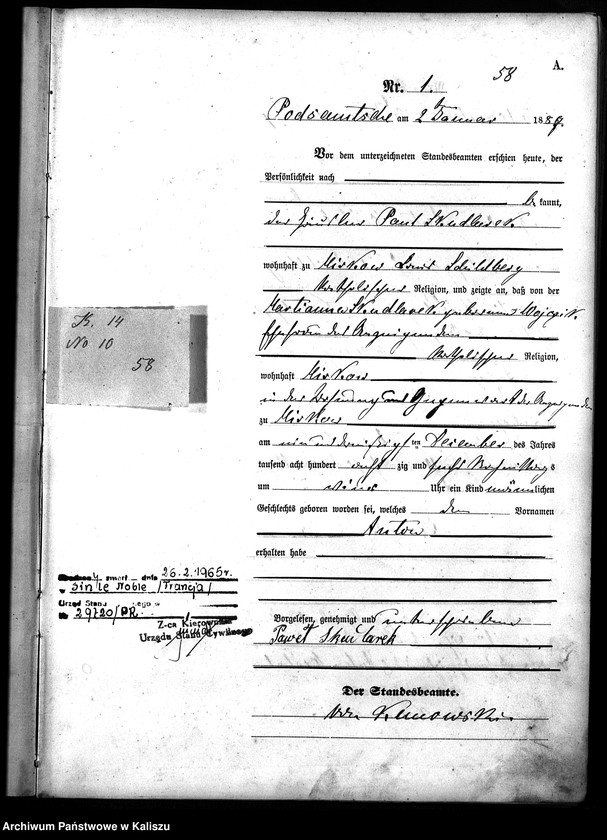 58
A.
Nr. 1.
Podsamtsche am 2 Januar 188
Vor dem unterzeichneten Standesbeamten erschien heute, der
Persönlichkeit nach
be kannt,
der Häusler Paul Skudlarek
wohnhaft zu Mirkow Kreis Schildberg
katholischer Religion, und zeigte an, daß von der
Marianna Skudlarek geborenen Wojcik
Ehefrau des Anzeigenden
katholischer Religion,
wohnhaft Mirkow
in der Wohnung und Gegenwart des Anzeigenden
zu Mirkow
am ein und dreißig ten Dezember des Jahres
tausend acht hundert acht zig und sechs Nachmittags
um Uhr ein Kind männlichen
Geschlechts geboren worden sei, welches den Vornamen
Anton
erhalten habe
Vorgelesen, genehmigt und unterschrieben
Paweł Skudlarek
Der Standesbeamte.
von
K. 14
No 10
58
zmarł dnia 26.2.1965r.
w Sin le Noble /Francja/
Urząd Stanu
29720/DR
Z-ca Kierownika
Urzędu Stanu Cywilnego
Archiwum Państwowe w Kaliszu